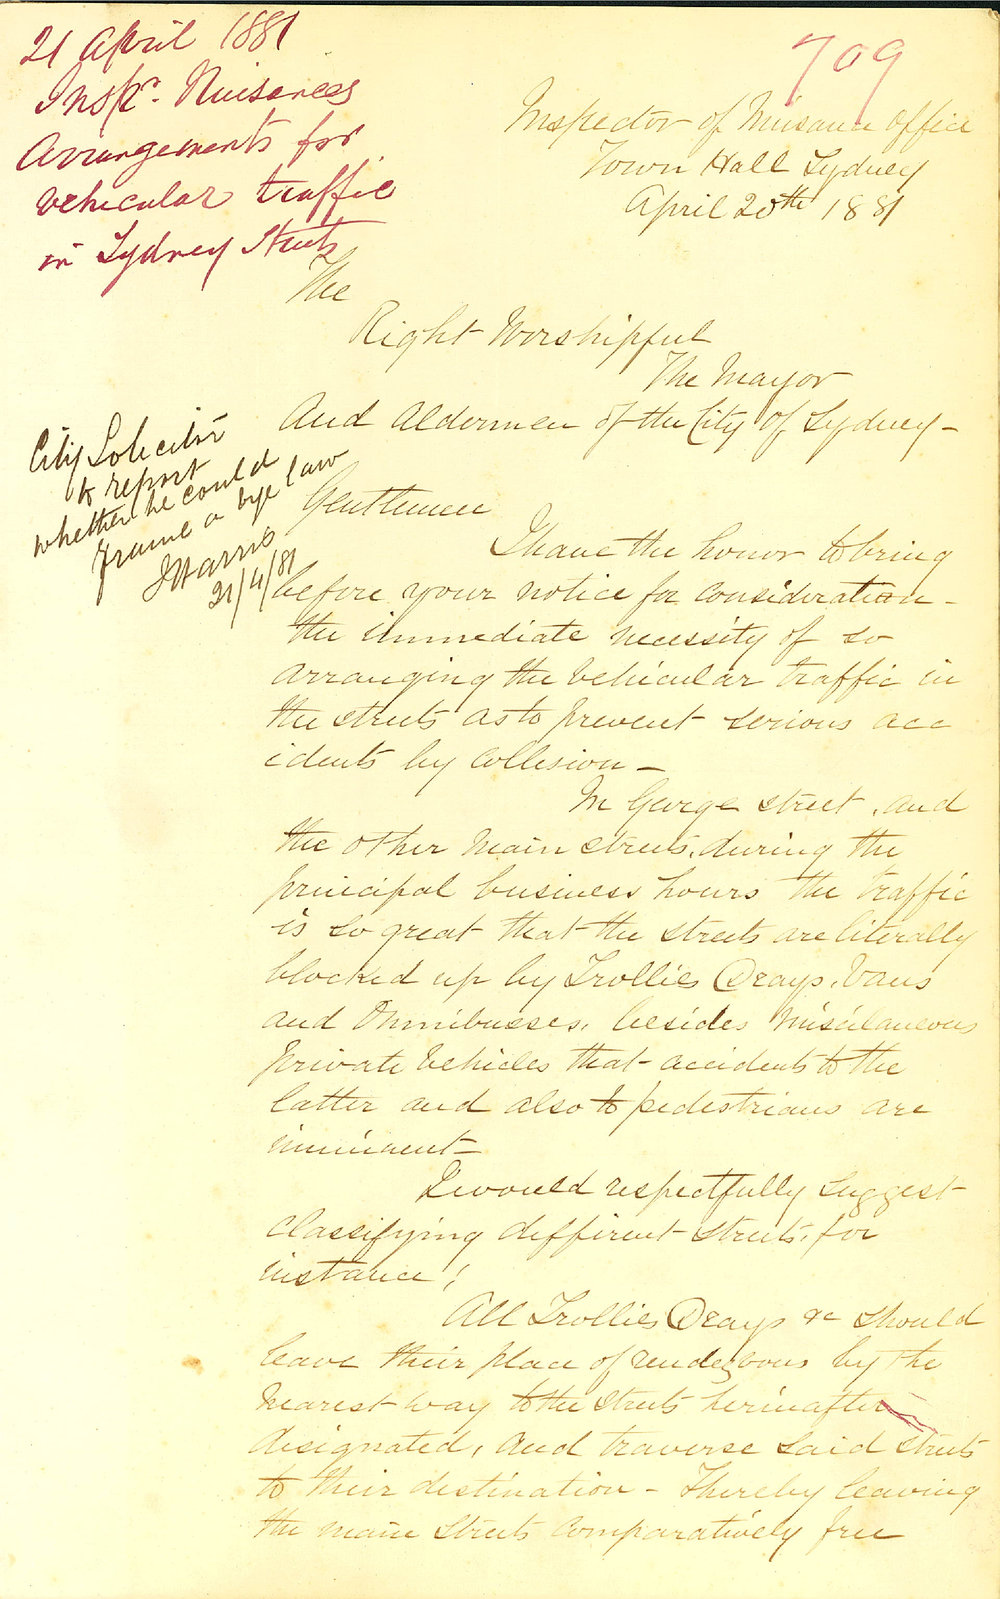 21 April 1881
Inspr. Nuisances
Arrangements for
vehicular traffic
in Sydney Streets
709
Inspector of Nuisance Office
Town Hall Sydney
April 20th 1881
The
Right Worshipful
The Mayor
And Aldermen of the City of Sydney -
City Solicitor
to report
whether he could
frame a bye law
J Harris
21/4/81
Gentlemen
I have the honor to bring
before your notice for consideration -
the immediate necessity of so
arranging the vehicular traffic in
the streets as to prevent serious acc
idents by collision -
In George street, and
the other main streets, during the
principal business hours the traffic
is so great that the streets are literally
blocked up by Trollies Drays, Vans
and Omnibusses, besides Miscilaneous
private vehicles that accidents to the
latter and also to pedestrians are
imminent -
I would respectfully suggest
classifying different streets, for
instance!
All Trollies Drays &c should
leave their place of rendezvous by the
nearest way to the streets herinafter
designated, and traverse said streets
to their destination - Thereby leaving
the main streets comparatively free